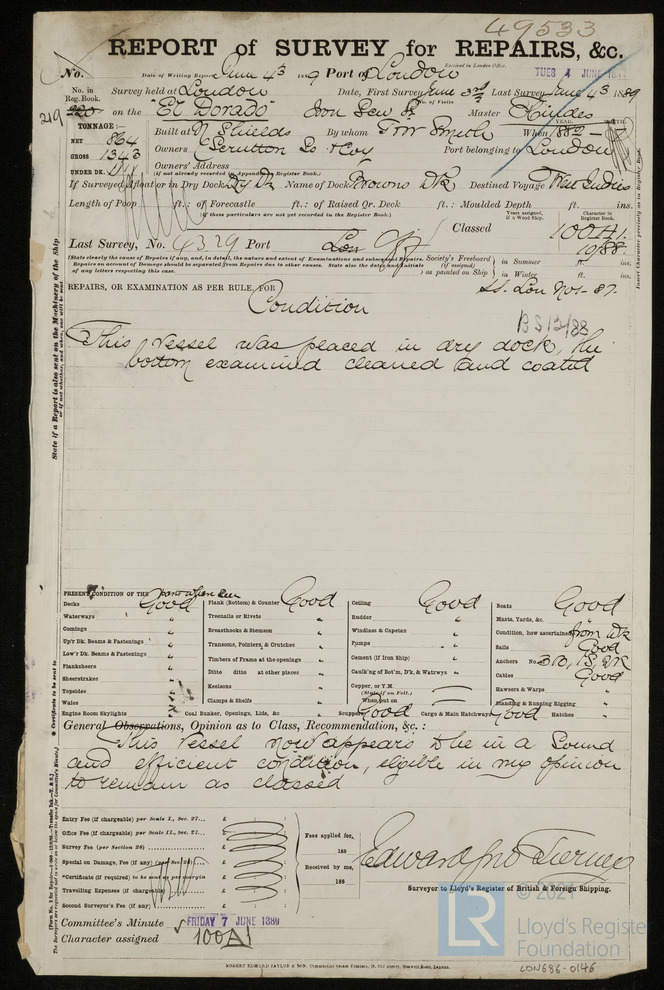 49533
REPORT of SURVEY for REPAIRS, &c.
Received in London Office
No. Date of Writing Report June 4th 1889 Port of London TUES 4 JUNE 188
No. in Reg. Book. Survey held at London Date, First Survey June 3rd Last Survey June 4th 1889
No. of Visits
219 on the "El Dorado" Iron Scw Sr Master Hindes
TONNAGE:— Built at N Shields By whom T W Smith When 1882
NET 864 Owners Scrutton Ss & Coy Port belonging to London
GROSS 1343 Owners' Address
UNDER DK. (if not already recorded in Appendix to Register Book.)
If Surveyed Afloat or in Dry Dock Dry Dk Name of Dock Browns Dk Destined Voyage West Indies
Length of Poop ft.: of Forecastle ft.: of Raised Qr. Deck ft.: Moulded Depth ft. ins.
(if these particulars are not yet recorded in the Register Book.)
Years assigned, if a Wood Ship. Character in Register Book.
Classed 100A1
Last Survey, No. 4329 Port Lon 10/88
(State clearly the Cause of Repairs if any, and, in detail, the nature and extent of Examinations and subsequent Repairs.
Repairs on account of Damage should be separated from Repairs due to other causes. State also the dates and initials
of any letters respecting this case.
Society's Freeboard (if assigned) as painted on Ship in Summer ft. ins.
in Winter ft. ins.
REPAIRS, OR EXAMINATION AS PER RULE, FOR Condition SS. Lon No1-87
BS12/88
This Vessel was placed in dry dock, the
bottom examined cleaned and coated
PRESENT CONDITION OF THE parts when seen
Decks Good Plank (Bottom) & Counter Good Ceiling Good Boats Good
Waterways " Treenails or Rivets " Rudder " Masts, Yards, &c. "
Comings " Breasthooks & Stemson " Windlass & Capstan " Condition, how ascertained from Dk
Up'r Dk. Beams & Fastenings " Transoms, Pointers, & Crutches " Pumps " Sails Good
Low'r Dk. Beams & Fastenings " Timbers of Frame at the openings " Cement (if Iron Ship) " Anchors No. 3B, 1S, 2K
Planksheers " Ditto ditto at other places " Caulk'g of Bot'm, D'k, & Watrwys " Cables Good
Sheerstrakes " Keelsons " Copper, or Y.M. (State if on Felt.) Hawsers & Warps "
Topsides " Clamps & Shelfs " When put on Standing & Running Rigging "
Wales "
Engine Room Skylights " Coal Bunker, Openings, Lids, &c " Scuppers Good Cargo & Main Hatchways Good Hatches "
General Observations, Opinion as to Class, Recommendation, &c. :
This Vessel now appears to be in a Sound
and efficient condition, eligible in my opinion
to remain as classed
Entry Fee (if chargeable) per Scale I., Sec. 27... £
Office Fee (if chargeable) per Scale II., Sec. 27... £ Fees applied for,
Survey Fee (per Section 28) £ 188
Special on Damage, Fee (if any) (per Sec. 28) £ Received by me,
*Certificate (if required) to be sent as per margin £ 188
Travelling Expenses (if chargeable) £
Second Surveyor's Fee (if any) £
Edward Jno Tierney
Surveyor to Lloyd's Register of British & Foreign Shipping.
Committee's Minute FRIDAY 7 JUNE 1889
Character assigned 100A1
ROBERT EDMUND TAYLOR & SON
State if a Report is also sent on the Machinery of the Ship
* Certificate to be sent to
LR © 2021
Lloyd's Register
Foundation
LON686-0146